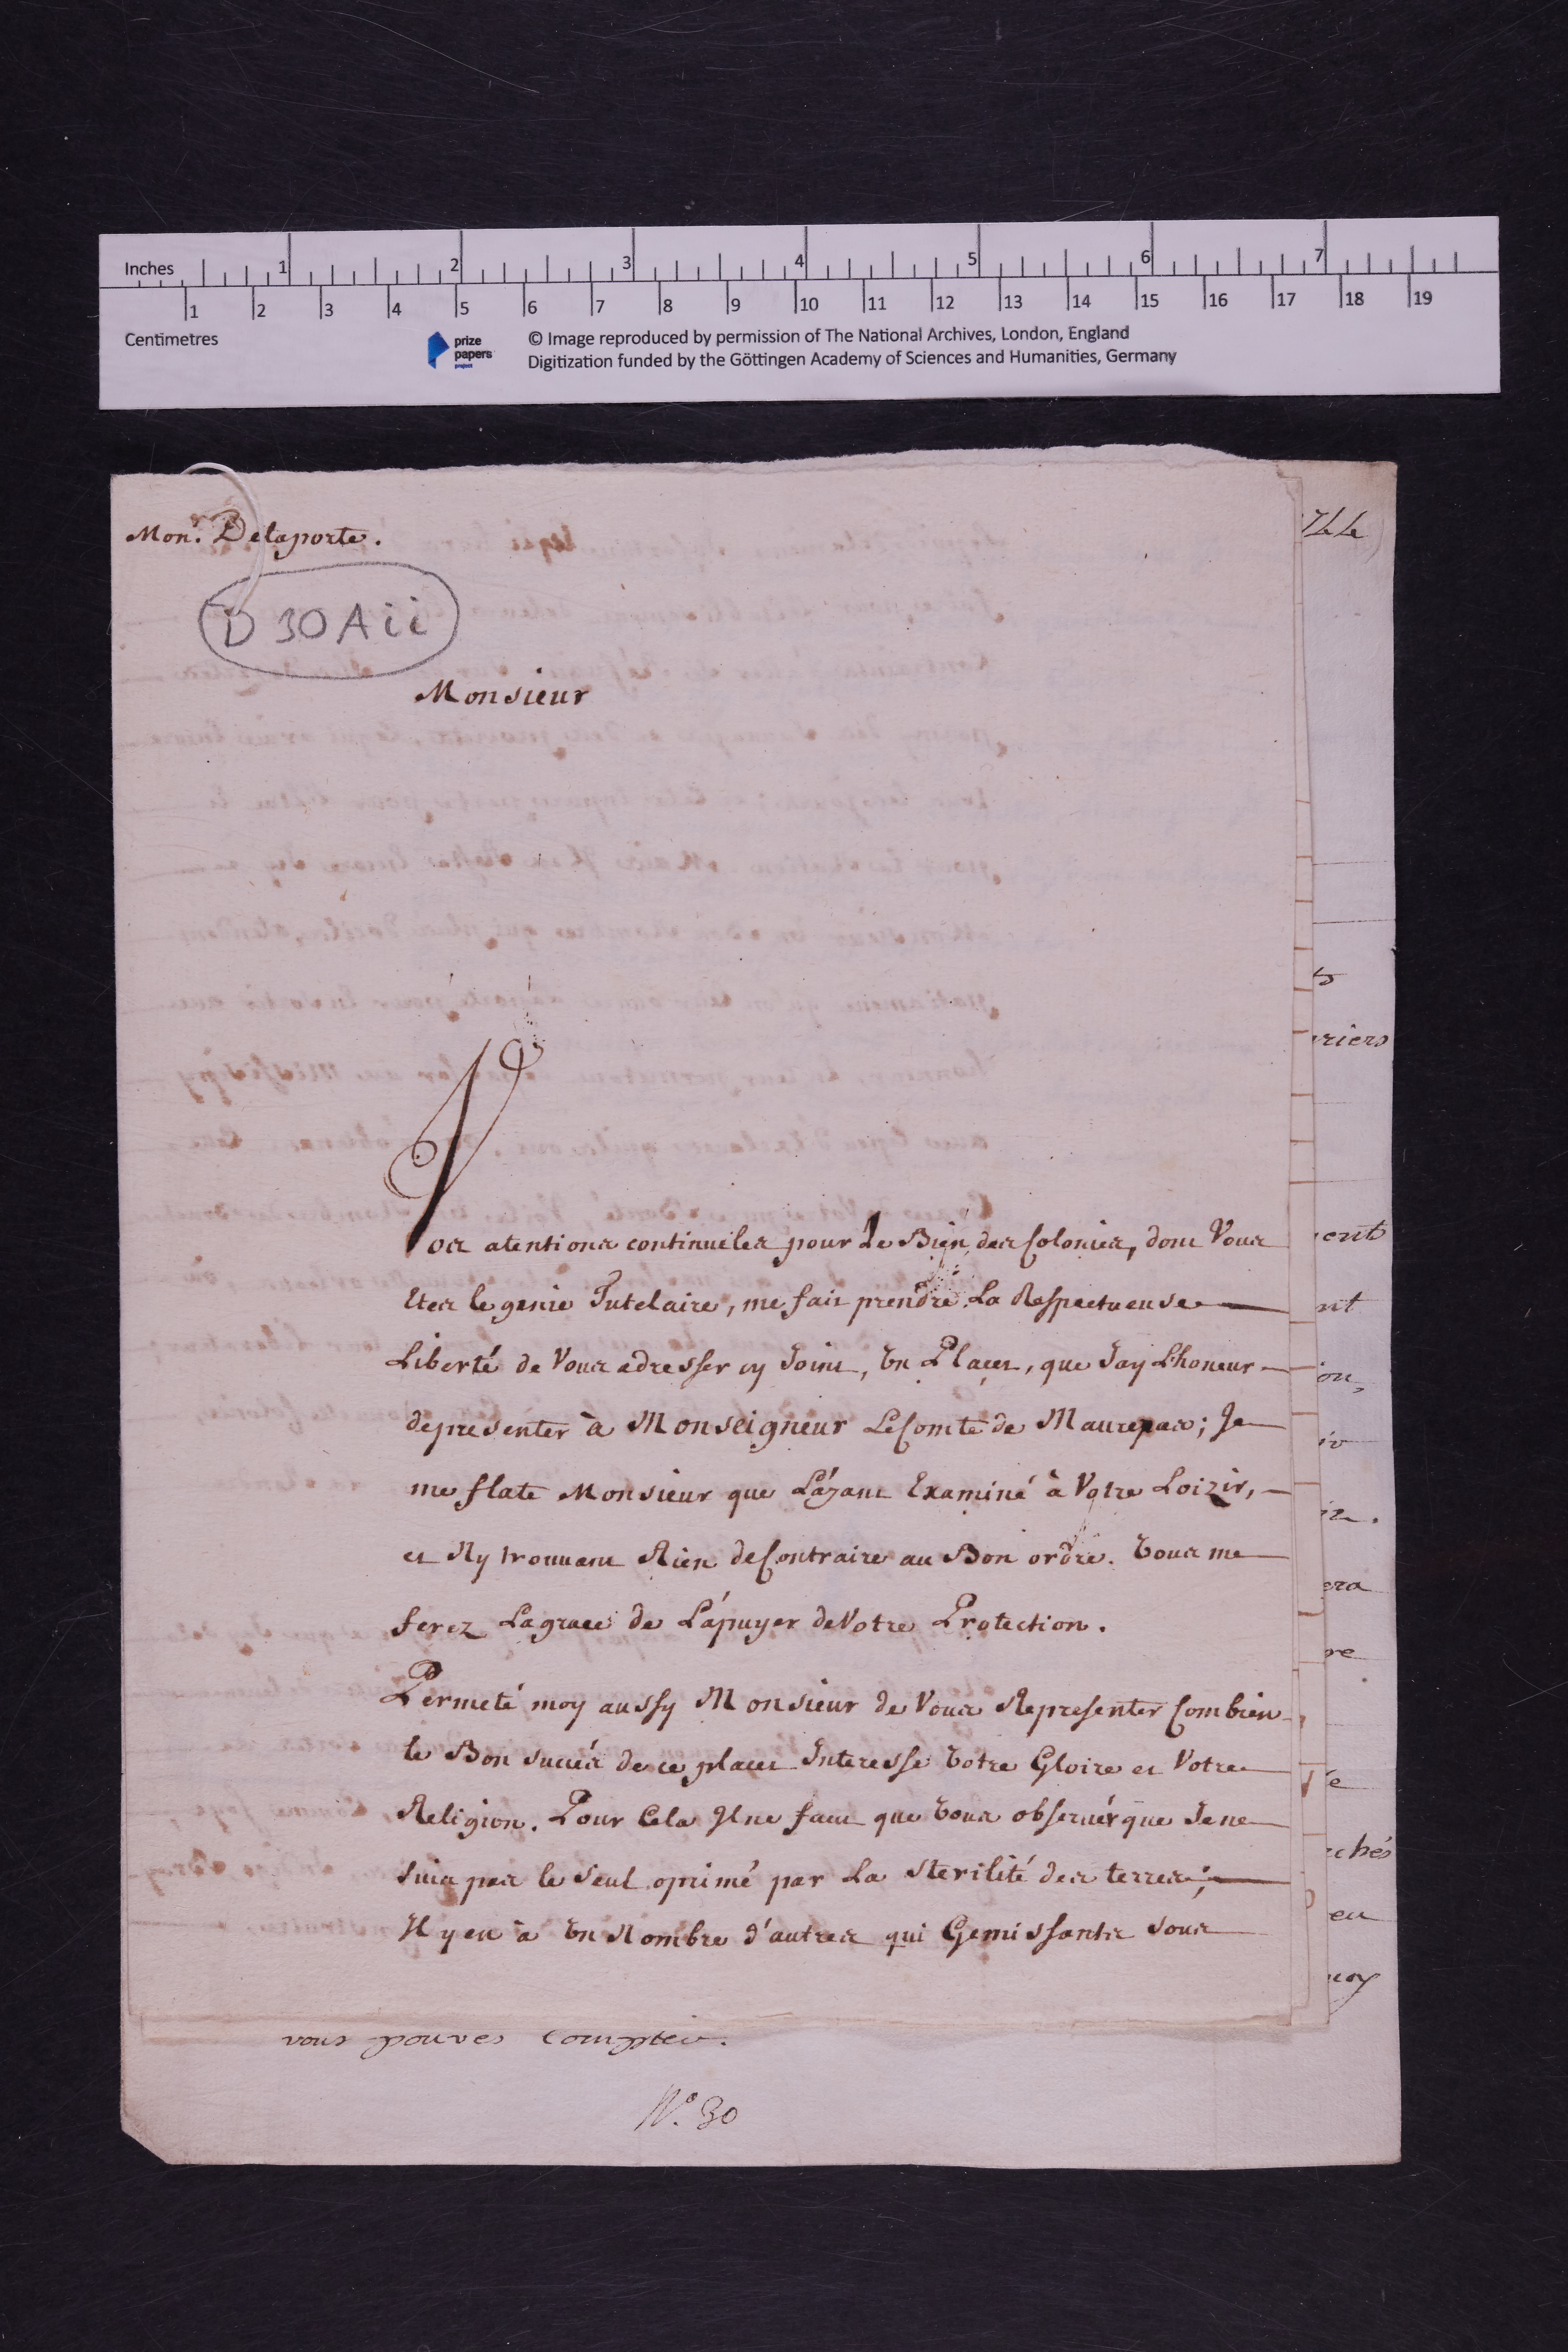 Inches 1 2 3 4 5 6 7
1 2 3 4 5 6 7 8 9 10 11 12 13 14 15 16 17 18 19
Centimetres
prize
papers
project
© Image reproduced by permission of The National Archives, London, England
Digitization funded by the Göttingen Academy of Sciences and Humanities, Germany
Monr. Delaporte.
D 30 A ii
Monsieur
Vos atentions continueles pour Le Bien des Colonies, dont Vous
Etes le genie Tutelaire, me fait prendre La Respectueuse
Liberté de Vous adresser cy Joint, Un Placet, que Jay L'honeur
depresenter à Monseigneur LeComte de Maurepas; Je
me flate Monsieur que L'áyant Examiné à Votre Loizir,
et Ny trouvant Rien deContraire au Bon ordre. Vous me
ferez Lagrace de L'ápuyer deVotre Protection.
Permeté moy aussy Monsieur de Vous Representer Combien
le Bon succés de ce placet Interesse Votre Gloire et Votre
Religion. Pour Cela Il ne faut que Vous observér que Je ne
suis pas le seul oprimé par La sterilité des terres;
Il y en à Un Nombre d'autres qui Gemissants sous
vous pouves compter.
No. 30
riers
ent
nt
on,
era
re
chés
eu